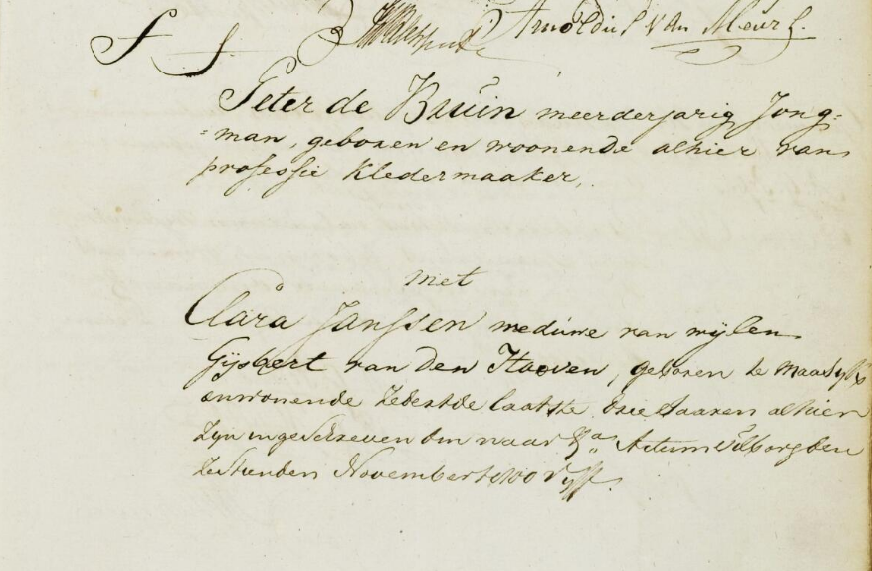 Arnoldus van Meurs.
Peter de Bruin meerderjarig Jong=
=man, geboren en woonende alhier van
professie Kledermaaker,
met
Clara Janssen weduwe van wijlen
Gijsbert van den Hoeven, geboren te
enwonende zedert de laatste drie Jaaren alhier
Zijn ingeschreven om naar Actum Tilborg den
Zestienden November